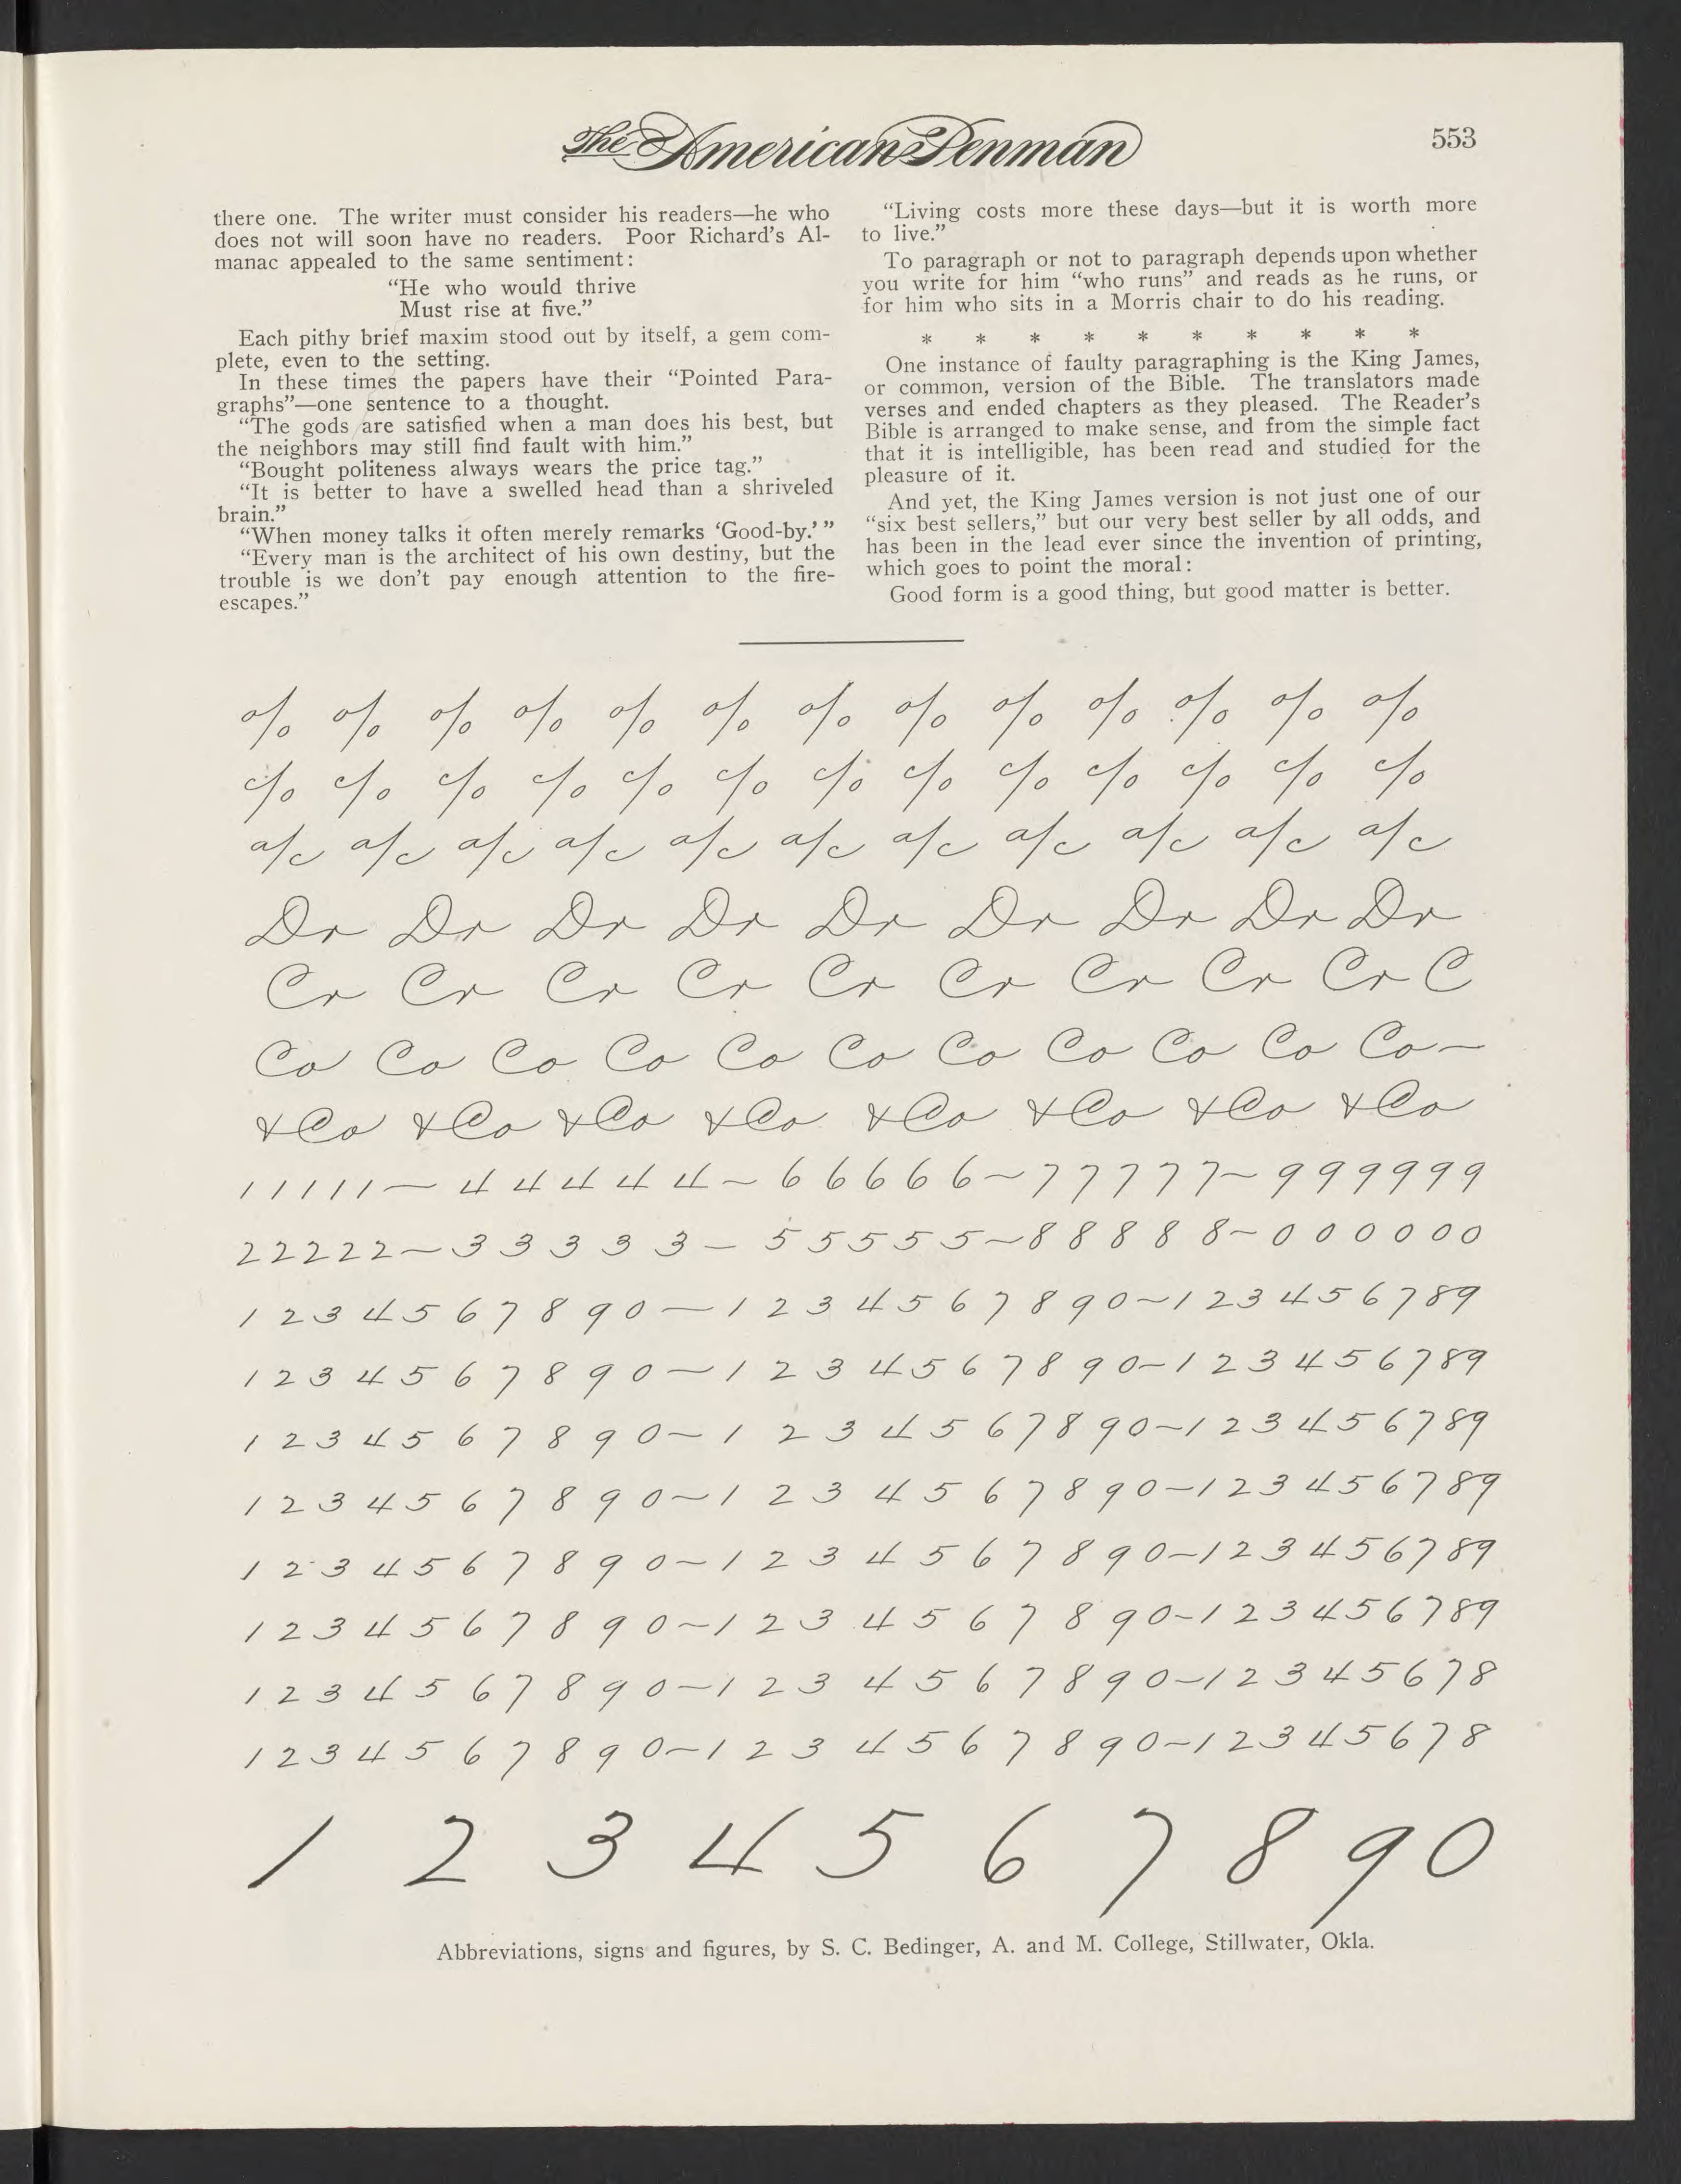 The American Penman
553
there one. The writer must consider his readers—he who
does not will soon have no readers. Poor Richard's Al-
manac appealed to the same sentiment:
“He who would thrive
Must rise at five.”
Each pithy brief maxim stood out by itself, a gem com-
plete, even to the setting.
In these times the papers have their “Pointed Para-
graphs”—one sentence to a thought.
“The gods are satisfied when a man does his best, but
the neighbors may still find fault with him.”
“Bought politeness always wears the price tag.”
“It is better to have a swelled head than a shriveled
brain.”
“When money talks it often merely remarks ‘Good-by.’ ”
“Every man is the architect of his own destiny, but the
trouble is we don't pay enough attention to the fire-
escapes.”
“Living costs more these days—but it is worth more
to live.”
To paragraph or not to paragraph depends upon whether
you write for him “who runs” and reads as he runs, or
for him who sits in a Morris chair to do his reading.
* * * * * * * * * *
One instance of faulty paragraphing is the King James,
or common, version of the Bible. The translators made
verses and ended chapters as they pleased. The Reader's
Bible is arranged to make sense, and from the simple fact
that it is intelligible, has been read and studied for the
pleasure of it.
And yet, the King James version is not just one of our
“six best sellers,” but our very best seller by all odds, and
has been in the lead ever since the invention of printing,
which goes to point the moral:
Good form is a good thing, but good matter is better.
% % % % % % % % % % % % %
c/o c/o c/o c/o c/o c/o c/o c/o c/o c/o c/o c/o c/o
a/c a/c a/c a/c a/c a/c a/c a/c a/c a/c a/c
Dr Dr Dr Dr Dr Dr Dr Dr Dr
Cr Cr Cr Cr Cr Cr Cr Cr Cr C
Co Co Co Co Co Co Co Co Co Co Co—
& Co & Co & Co & Co & Co & Co & Co & Co
1 1 1 1 1 — 4 4 4 4 4 — 6 6 6 6 6 — 7 7 7 7 7 — 9 9 9 9 9 9
2 2 2 2 2 — 3 3 3 3 3 — 5 5 5 5 5 — 8 8 8 8 8 — 0 0 0 0 0 0
1 2 3 4 5 6 7 8 9 0 — 1 2 3 4 5 6 7 8 9 0 — 1 2 3 4 5 6 7 8 9
1 2 3 4 5 6 7 8 9 0 — 1 2 3 4 5 6 7 8 9 0 — 1 2 3 4 5 6 7 8 9
1 2 3 4 5 6 7 8 9 0 — 1 2 3 4 5 6 7 8 9 0 — 1 2 3 4 5 6 7 8 9
1 2 3 4 5 6 7 8 9 0 — 1 2 3 4 5 6 7 8 9 0 — 1 2 3 4 5 6 7 8 9
1 2 3 4 5 6 7 8 9 0 — 1 2 3 4 5 6 7 8 9 0 — 1 2 3 4 5 6 7 8 9
1 2 3 4 5 6 7 8 9 0 — 1 2 3 4 5 6 7 8 9 0 — 1 2 3 4 5 6 7 8 9
1 2 3 4 5 6 7 8 9 0 — 1 2 3 4 5 6 7 8 9 0 — 1 2 3 4 5 6 7 8
1 2 3 4 5 6 7 8 9 0 — 1 2 3 4 5 6 7 8 9 0 — 1 2 3 4 5 6 7 8
1 2 3 4 5 6 7 8 9 0
Abbreviations, signs and figures, by S. C. Bedinger, A. and M. College, Stillwater, Okla.